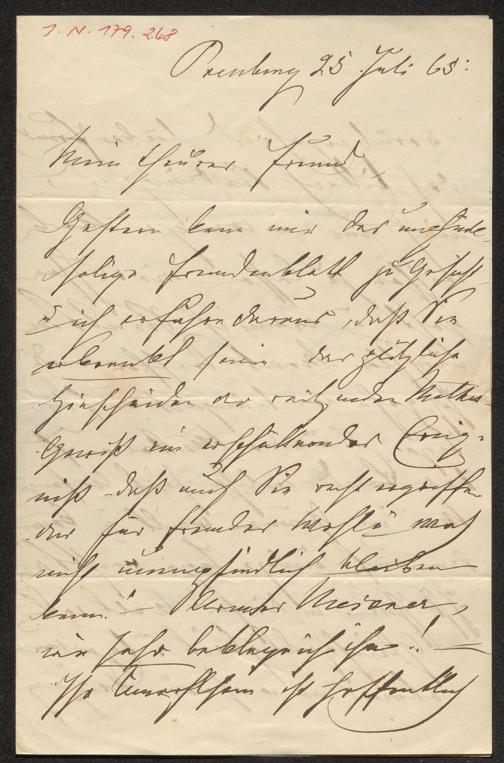 J. N. 179.268
25 Juli 65:
Mein theurer Freund,
Gestern kam mir das
Fremdenblatt zu Gesicht
u ich erfahre daraus, daß Sie
sein das plötzliche
Hinscheiden der reitzenden
Gewiß ein erschütterndes Ereig-
niß daß auch Sie recht ergriffen
der für fremdes Wohl u
nicht unempfindlich bleiben
kann! — Armer Meixner,
wie sehr beklage ich ihn! —
Ihr Unwohlsein ist hoffentlich